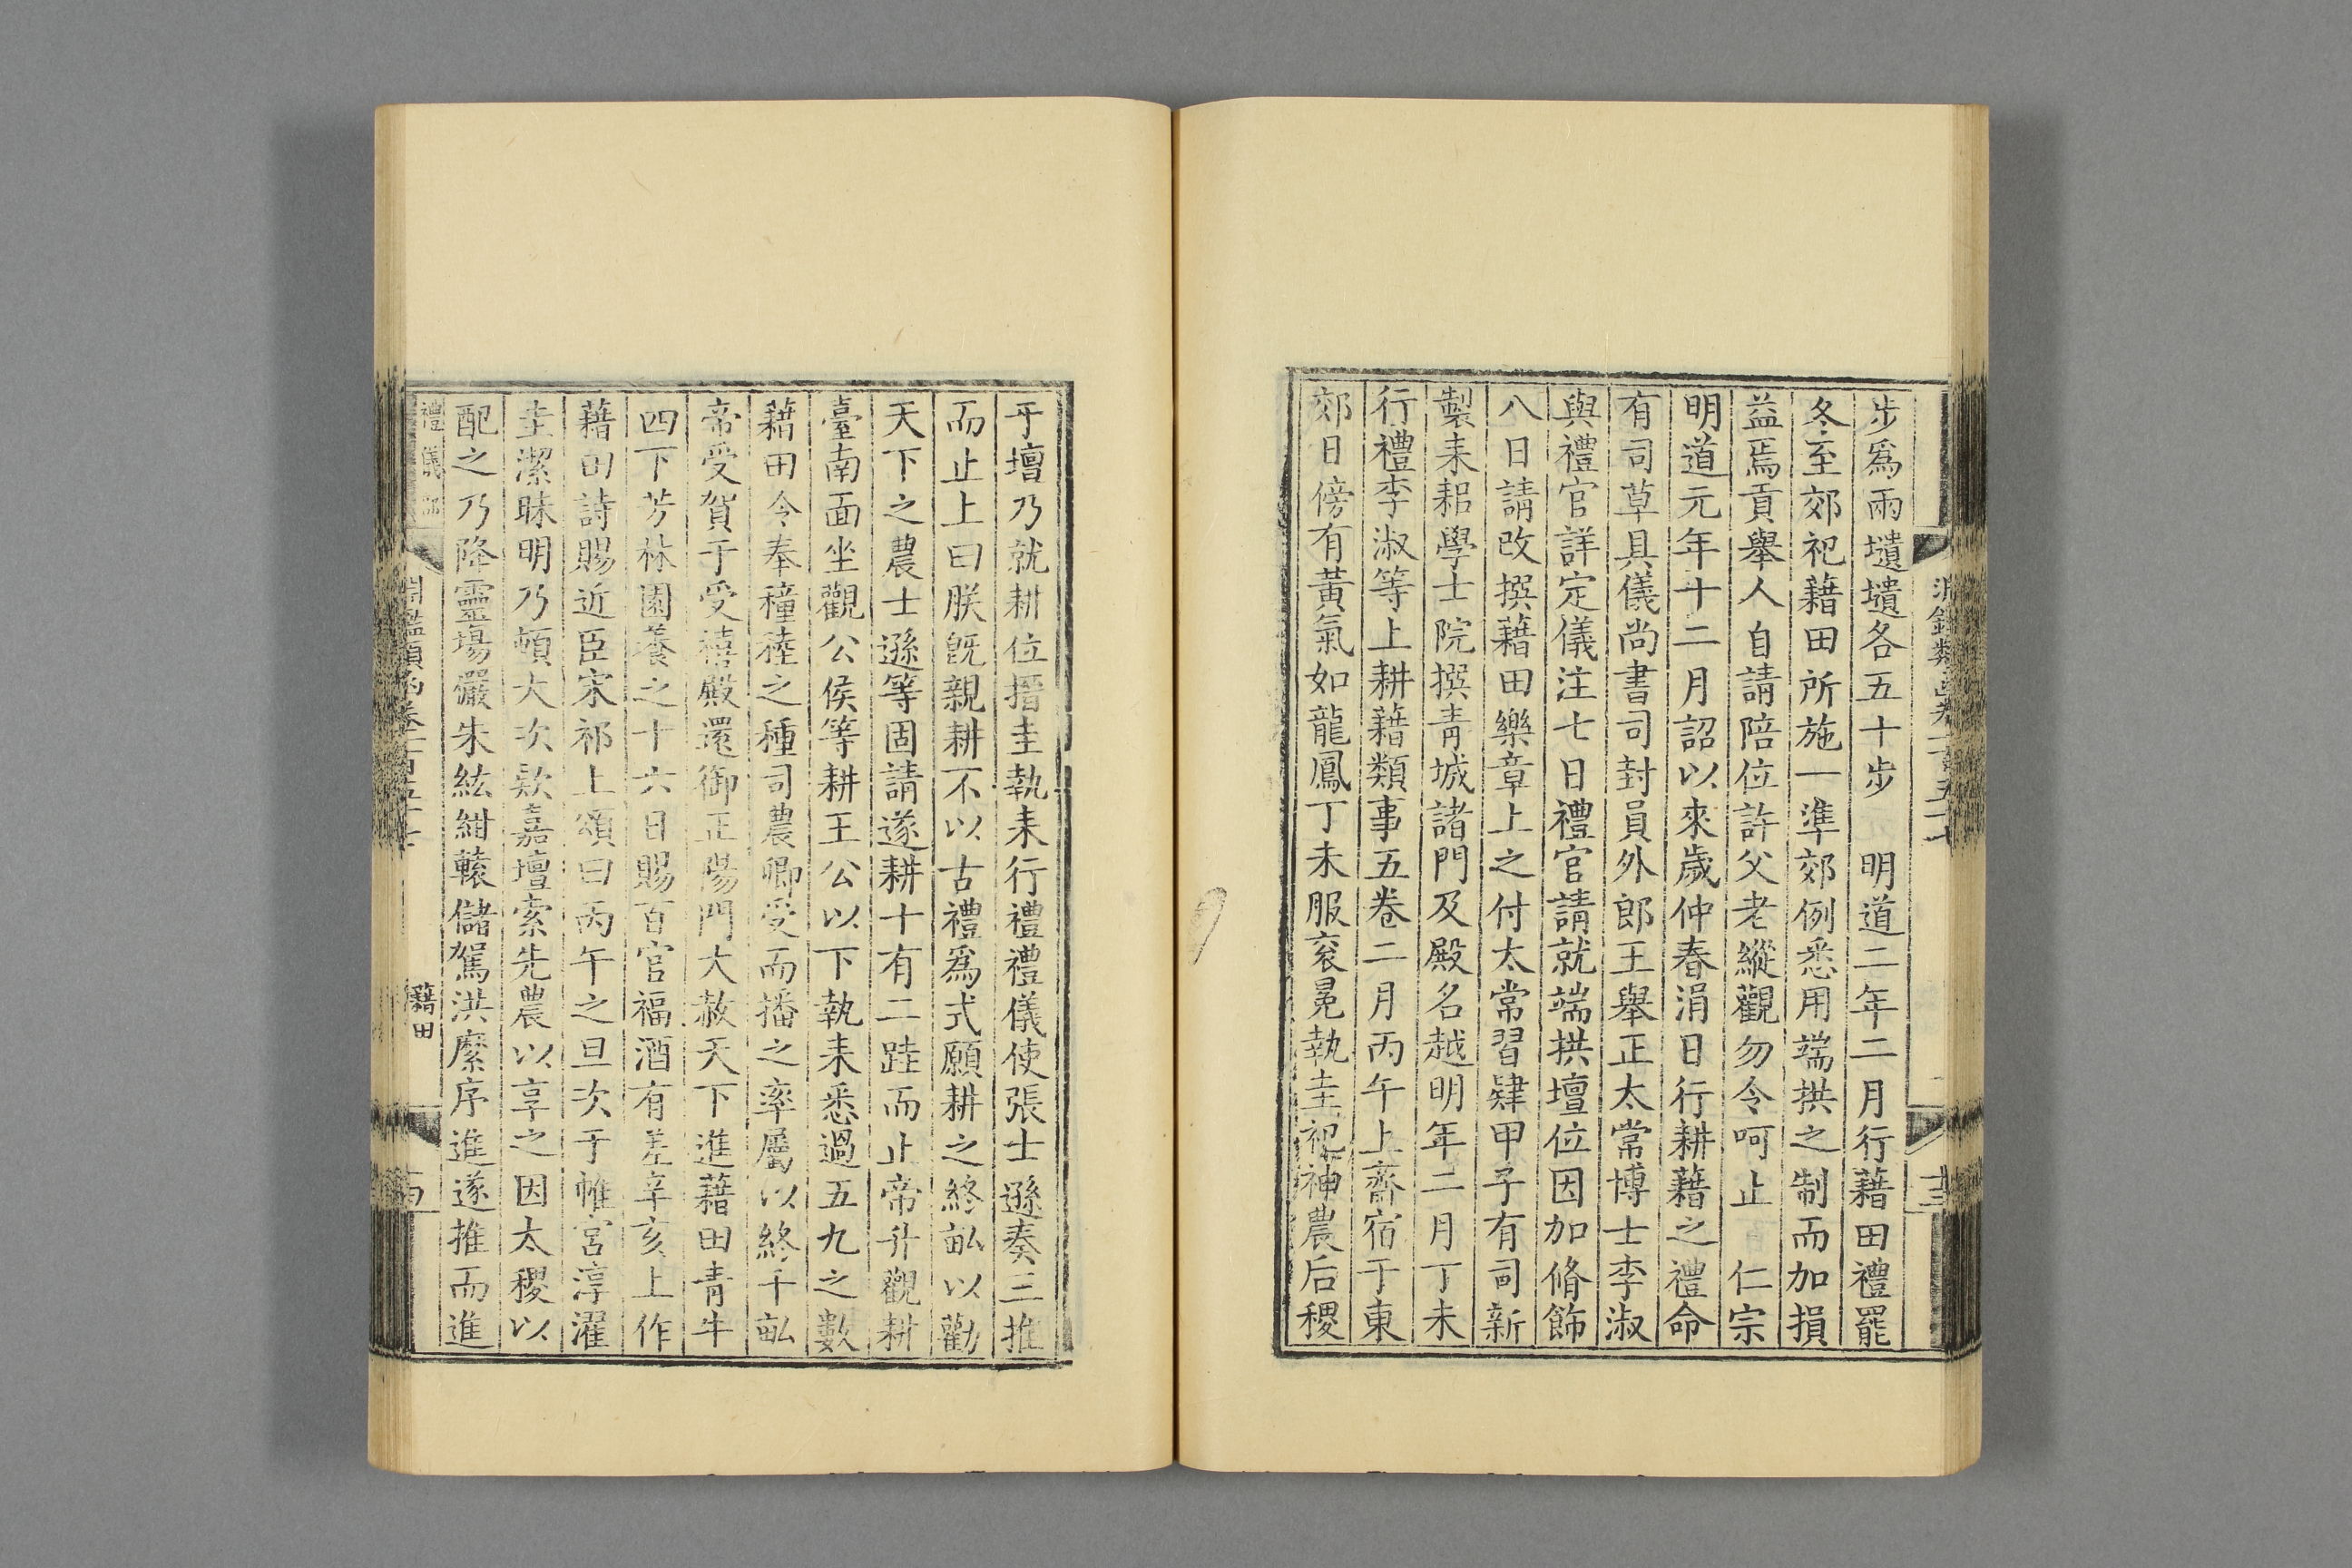 步爲兩壝壝各五十步　明道二年二月行藉田禮罷
冬至郊祀藉田所施一準郊例悉用端拱之制而加損
益焉貢舉人自請陪位許父老縱觀勿令呵止　仁宗
明道元年十二月詔以來歲仲春涓日行耕藉之禮命
有司草具儀尚書司封員外郎王舉正太常博士李淑
與禮官詳定儀注七日禮官請就端拱壇位因加脩飾
八日請改撰藉田樂章上之付太常習肄甲子有司新
製耒耜學士院撰青城諸門及殿名越明年二月丁未
行禮李淑等上耕藉類事五卷二月丙午上齋宿于東
郊日傍有黃氣如龍鳳丁未服袞冕執圭祀神農后稷
于壇乃就耕位搢圭執耒行禮禮儀使張士遜奏三推
而止上曰朕既親耕不以古禮爲式願耕之終畝以勸
天下之農士遜等固請遂耕十有二跬而止帝升觀耕
臺南面坐觀公侯等耕王公以下執耒悉過五九之數
藉田令奉穜稑之種司農卿受而播之率屬以終千畝
帝受賀于受禧殿還御正陽門大赦天下進藉田青牛
四下芳林園養之十六日賜百官福酒有差辛亥上作
藉田詩賜近臣宋祁上頌曰丙午之旦次于帷宮淳濯
圭潔昧明乃頓大次欵嘉壇索先農以享之因太稷以
配之乃降靈場儼朱紘紺轅儲駕洪縻序進遂推而進
禮儀部
淵鑑類函卷一百五十七
藉田